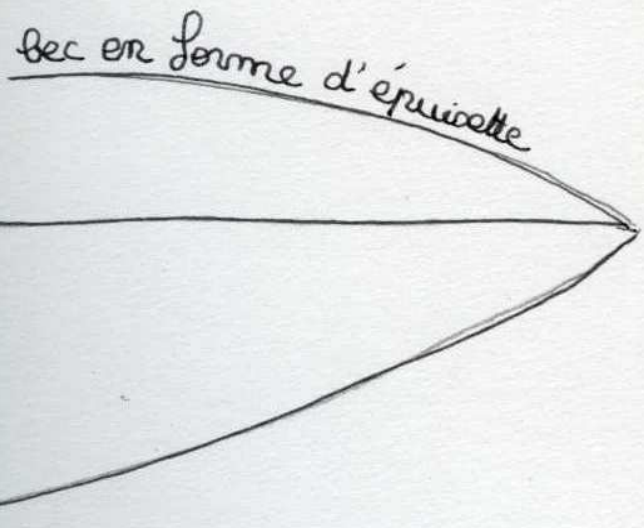 bec en forme d'épuisette